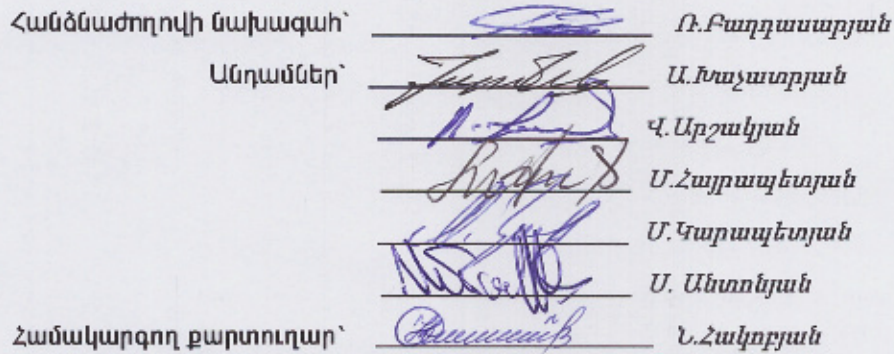 Հանձնաժողովի նախագահ՝ Ռ.Բաղդասարյան
Անդամներ՝ Ա.Խաչատրյան
Վ.Արշակյան
Մ.Հայրապետյան
Մ.Կարապետյան
Ս. Անտոնյան
Համակարգող քարտուղար՝ Ն.Հակոբյան